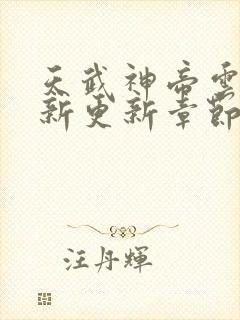 天武神帝雲
新更新章節
汪丹輝